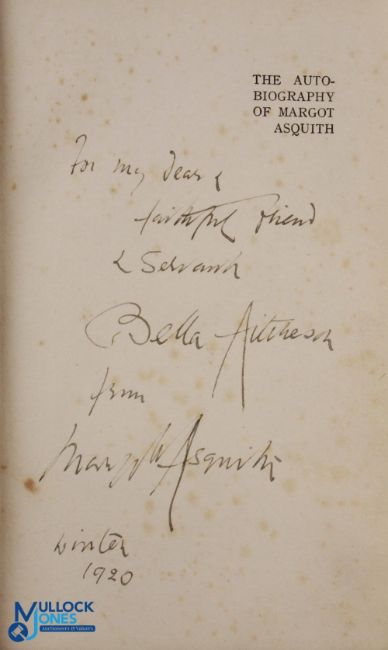 THE AUTO-
BIOGRAPHY
OF MARGOT
ASQUITH
For my dear &
faithful friend
& Servant
Bella Aitcheson
from
Margot Asquith
Winter
1920
MULLOCK
JONES